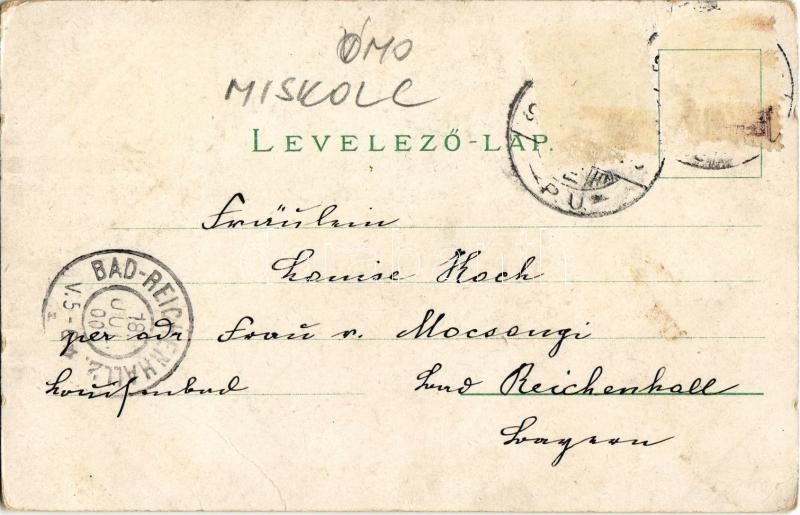 ÓMO
MISKOLC
LEVELEZŐ-LAP.
P.U.
Fräulein
Louise Koch
BAD-REICHENHALL 2.
18. JU 00
V.5-
per adr Frau v. Mocsonyi
Louisenbad Bad Reichenhall
Bayern